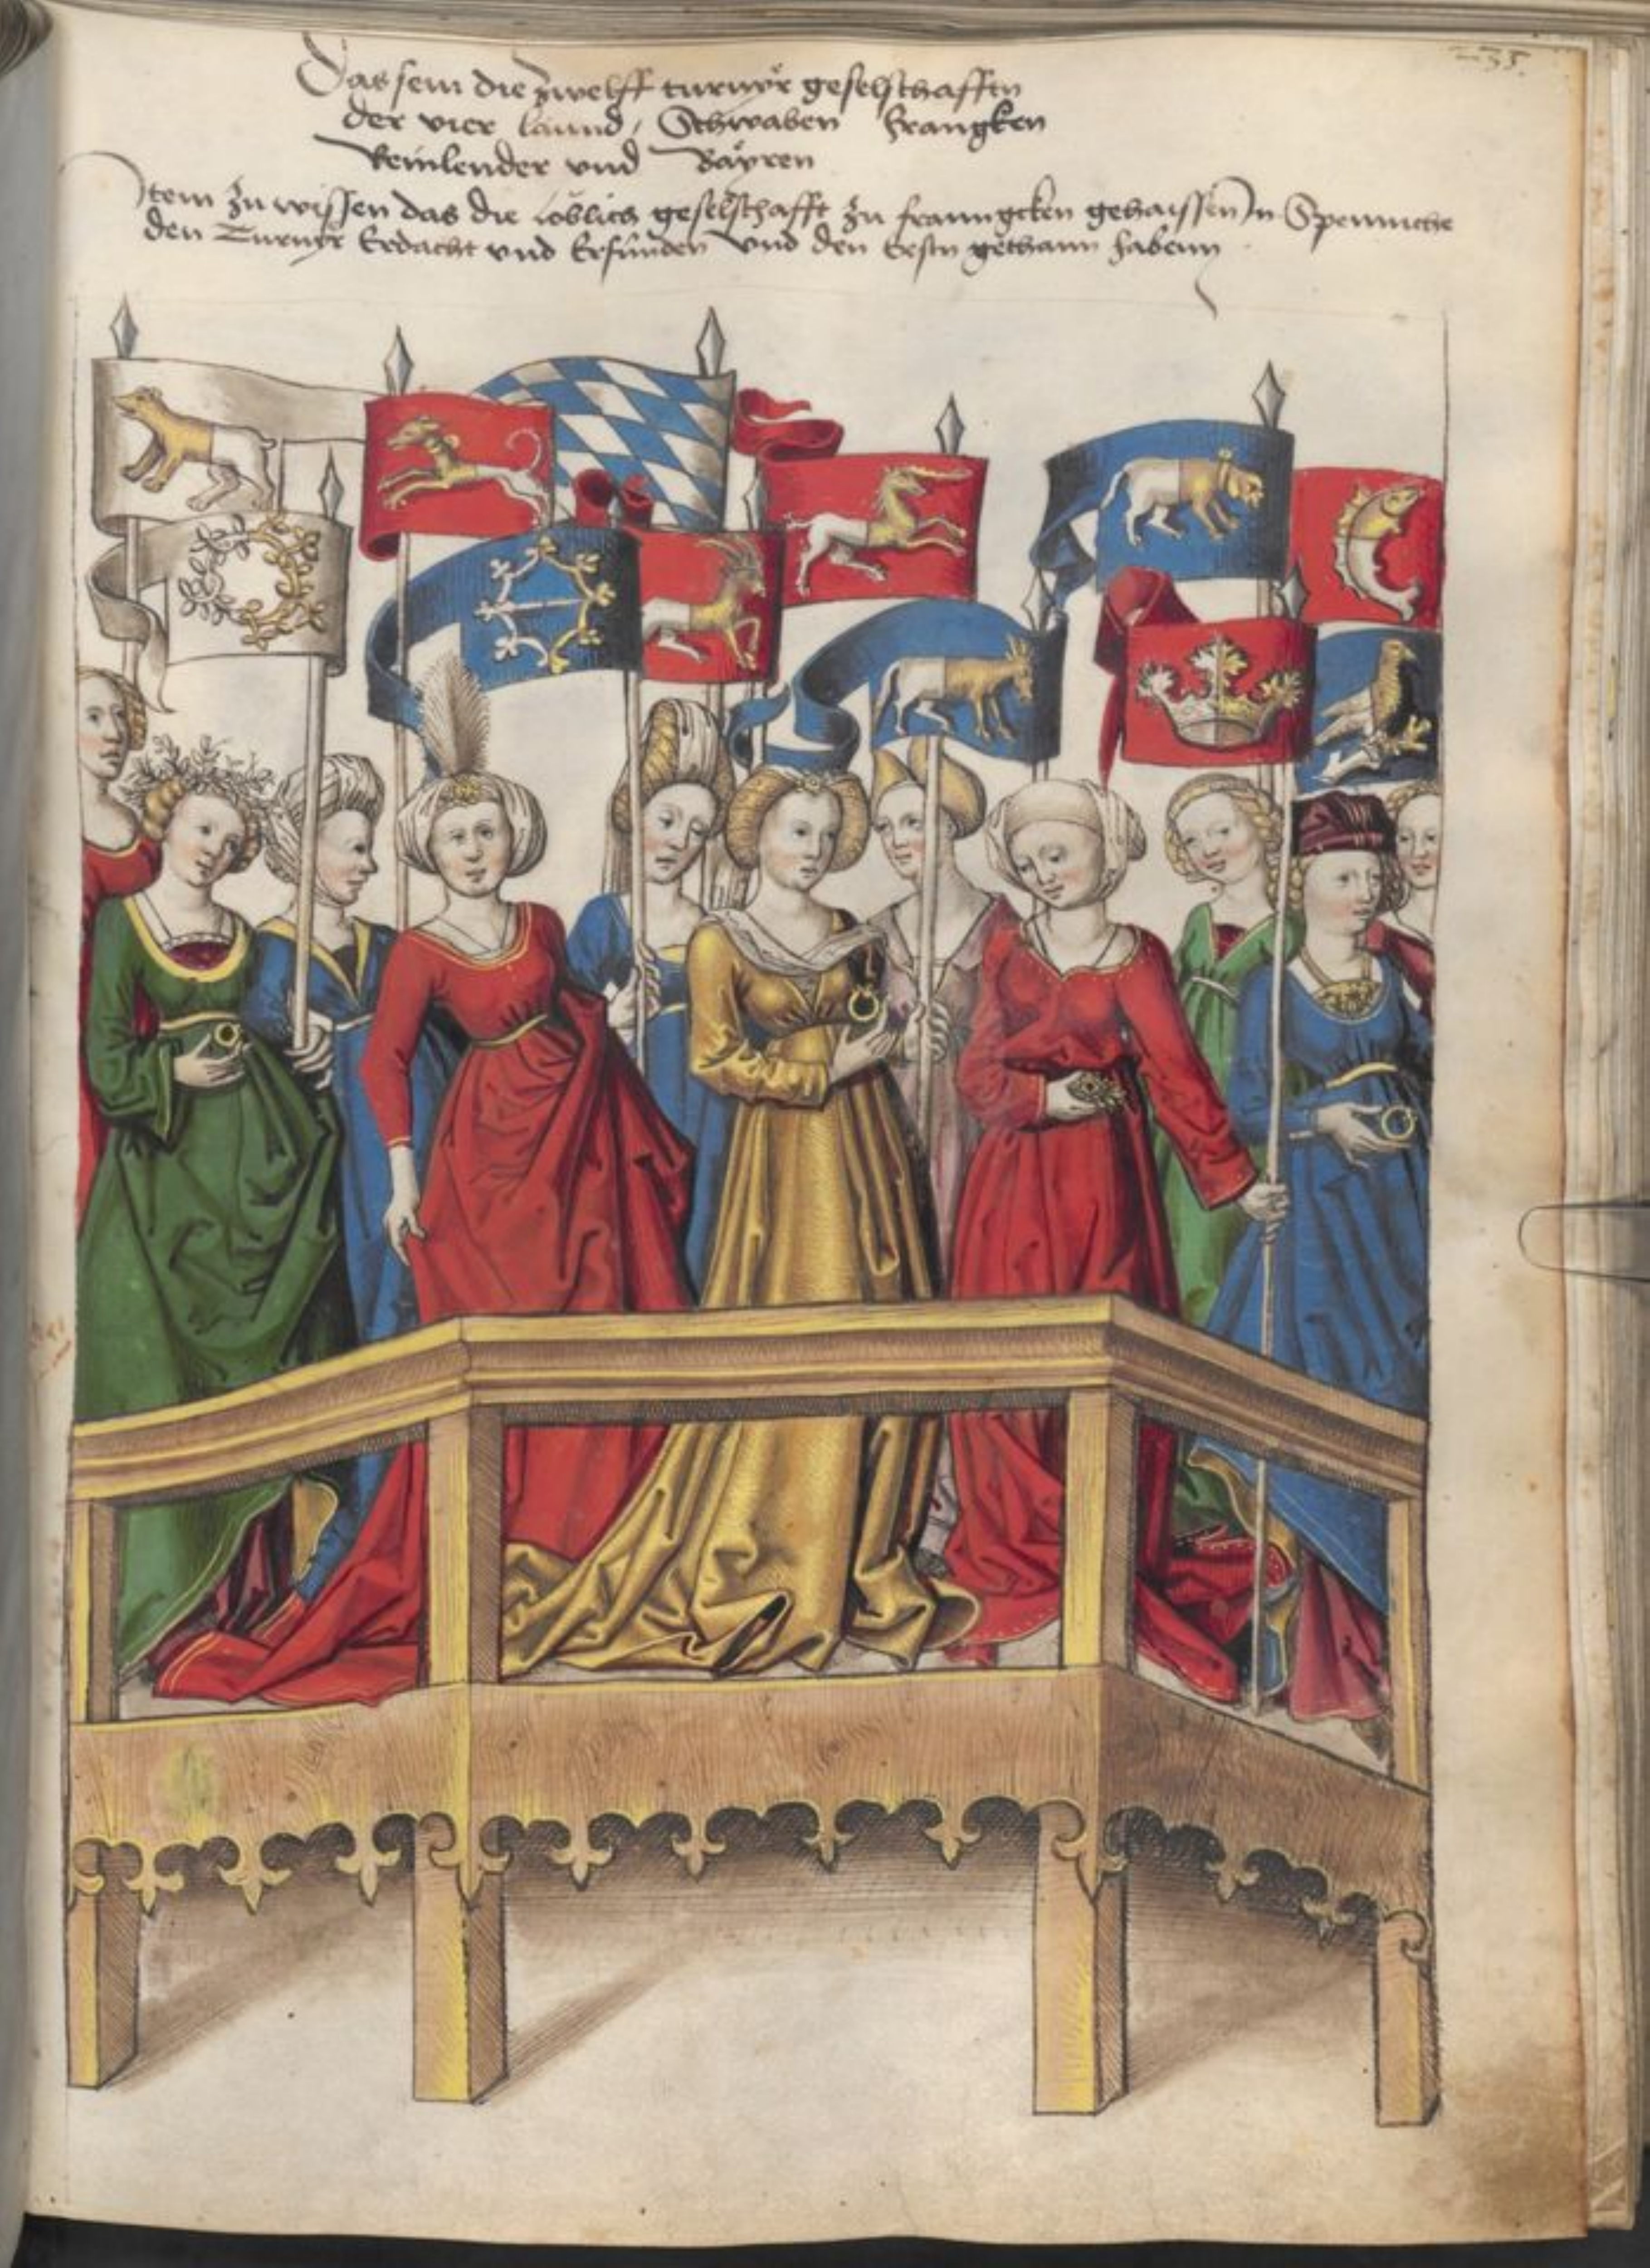 235.
Das sein die zwelff turnyr geselschafften
der vier lannd / Schwaben Franngken
Reinlender vnd Bayren
Item zu wissen das die loblich geselschafft zu franngcken gehaissen In
den Turnyr Erdacht vnd Erfunden vnd den Erstn gethann habenn